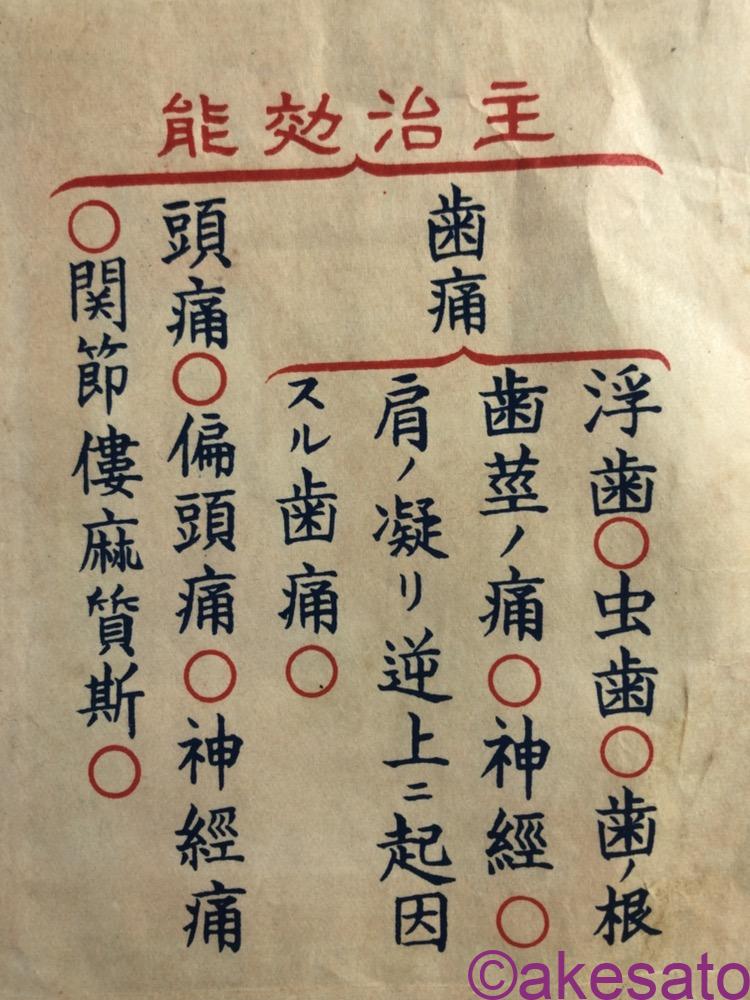 主治効能
歯痛
浮歯○虫歯○歯ノ根
歯茎ノ痛○神經○
肩ノ凝リ逆上ニ起因
スル歯痛○
頭痛○偏頭痛○神經痛
○関節僂麻質斯○
©akesato